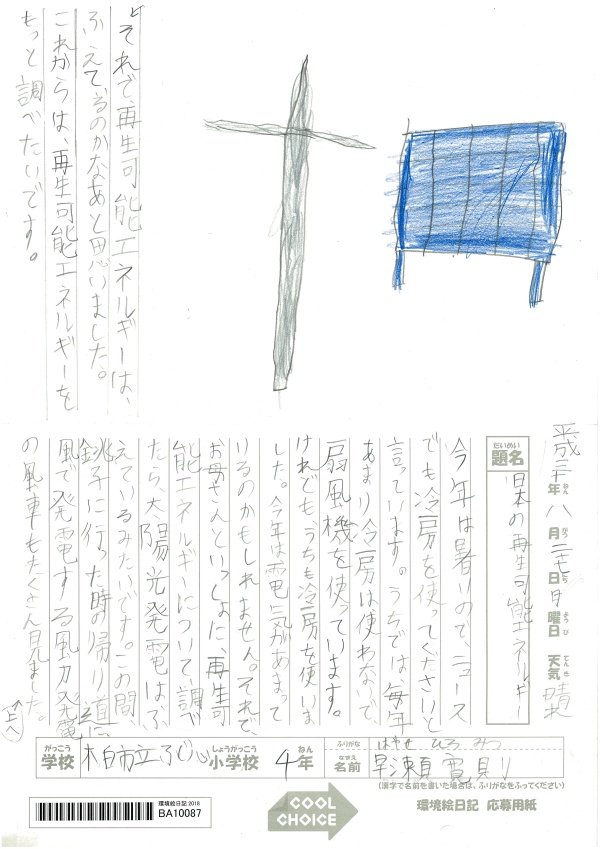 平成三十年八月二十七日月曜日 天気 晴れ
ねん がつ にち ようび てんき
だいめい
題名 日本の再生可能エネルギー
今年は暑いので、ニュース
でも冷房を使ってくださいと
言っています。うちでは、毎年
あまり冷房は使わないで
扇風機を使っています。
けれども、うちも冷房を使いま
した。今年は電気があまって
いるのかもしれません。それで、
お母さんといっしょに、再生可
能エネルギーについて、調べ
たら太陽光発電はふ
えているみたいです。この間、
銚子に行った時の帰り道に
風で発電する風力発電
の風車もたくさん見ました。
↑上へ
それで、再生可能エネルギーは、
ふえているのかなあと思いました。
これからは、再生可能エネルギーを
もっと調べたいです。
がっこう しょうがっこう ねん
学校 柏市立 小学校 4年
ふりがな はやせ ひろ みつ
なまえ
名前 早瀬寛則
(漢字で名前を書いた場合は、ふりがなをふってください)
環境絵日記 2018
BA10087
COOL
CHOICE
環境絵日記 応募用紙